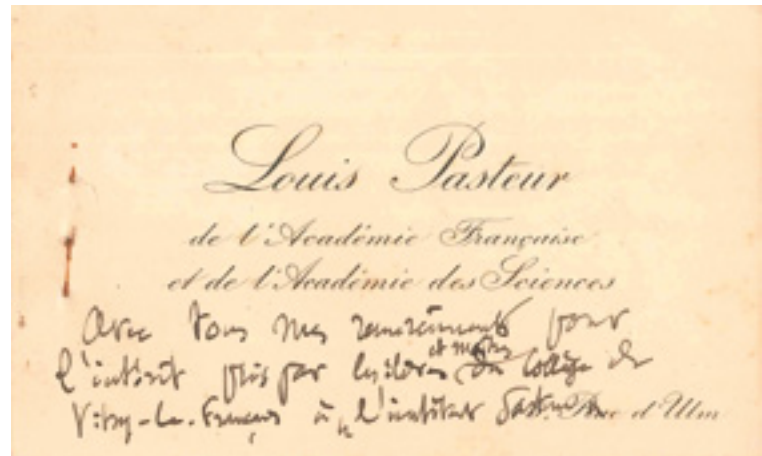 Louis Pasteur
de l'Académie Française
et de l'Académie des Sciences
Avec tous mes remerciements pour
et maîtres
l'intérêt pris par les élèves du Collège de
Vitry-le-François à l'institut Pasteur
Rue d'Ulm